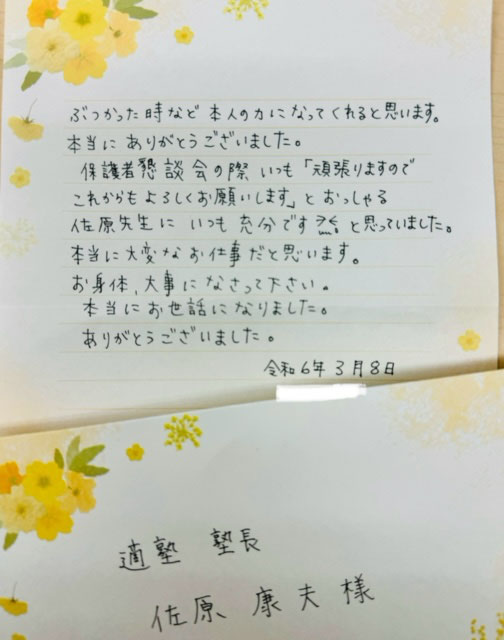 ぶつかった時など本人の力になってくれると思います。
本当にありがとうございました。
保護者懇談会の際いつも「頑張りますので
これからもよろしくお願いします」とおっしゃる
佐原先生にいつも充分です と思っていました。
本当に大変なお仕事だと思います。
お身体、大事になさって下さい。
本当にお世話になりました。
ありがとうございました。
令和6年3月8日
適塾 塾長
佐原 康夫様